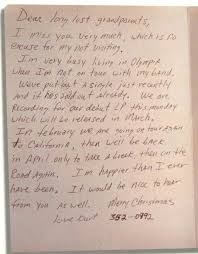 Dear long lost grandparents,
I miss you very much, which is no
excuse for my not visiting.
I'm very busy living in Olympia
when I'm not on tour with my band.
We've put out a single just recently
and it has sold out already. We are
Recording for our debut LP this monday
which will be released in March.
In February we are going on tour again
to California, then we'll be back
in April only to take a break, then on the
Road Again. I'm happier than I ever
have been. It would be nice to hear
from you as well. Merry Christmas
love Kurt 352-0992